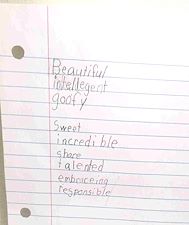 Beautiful
intellegent
goofy
Sweet
incredible
share
talented
embraceing
responsible